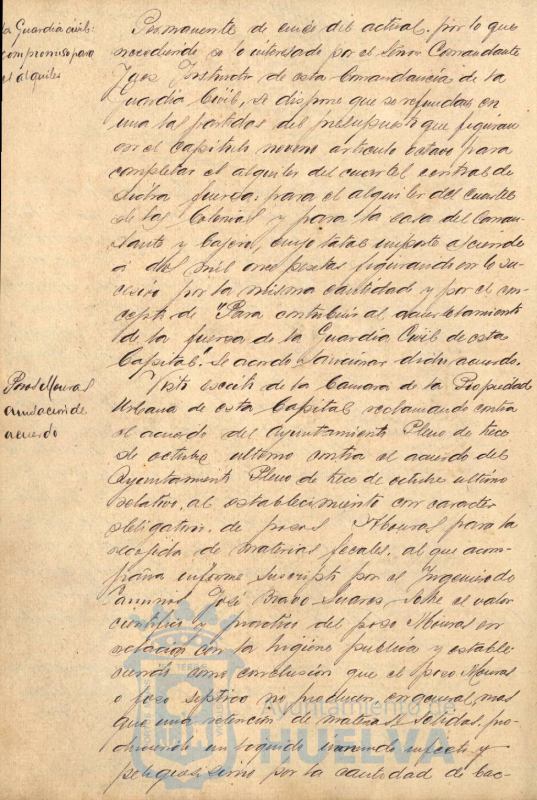 la Guardia civil:
compromiso para
el alquiler
Permanente de once del actual, por lo que
accediendo a lo interesado por el Señor Comandante
Juez Instructor de esta Comandancia de la
Guardia Civil, se dispone que se refundan en
una las partidas del presupuesto que figuran
en el capitulo noveno articulo octavo para
completar el alquiler del cuartel central de
dicha fuerza; para el alquiler del cuartel
de las Colonias y para la casa del Coman-
dante y Cajero, cuyo total importe asciende
a dos mil once pesetas figurando en lo su-
cesivo por la misma cantidad y por el con-
cepto de "Para contribuir al acuartelamiento
de la fuerza de la Guardia Civil de esta
Capital". Se acordo sancionar dicho acuerdo.
Pozos Mouras
anulación de
acuerdo
Visto escrito de la Camara de la Propiedad
Urbana de esta Capital reclamando contra
el acuerdo del Ayuntamiento Pleno de trece
de octubre ultimo contra el acuerdo del
Ayuntamiento Pleno de trece de octubre ultimo
relativo al establecimiento con caracter
obligatorio de pozos Mouras para la
recogida de materias fecales, al que acom-
paña informe suscripto por el Ingeniero de
Caminos José Bravo Suarez sobre el valor
cientifico y practico del pozo Mouras en
relacion con la higiene publica y estable-
ciendo como conclusión que el pozo Mouras
o foso septico no producen, en general, mas
que una retención de materias solidas, pro-
duciendo un liquido infecto y
peligrosisimo por la cantidad de bac-
Ayuntamiento de
HUELVA